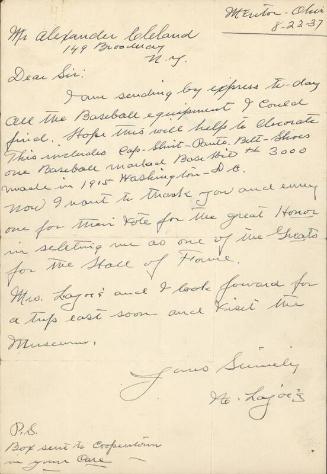 Mentor - Ohio
8-22-37
Mr Alexander Cleland
149 Broadway
N.Y.
Dear Sir:
I am sending by express to-day
all the Baseball equipment I could
find. Hope this will help to decorate
This includes Cap-Shirt-Pants-Belt-Shoes
one Baseball marked Base Hit # 3000
made in 1915 Washington-D.C.
Now I want to thank you and every
one for their Vote for the great Honor
in selecting me as one of the Greats
for the Hall of Fame.
Mrs. Lajoie and I look forward for
a trip east soon and visit the
Museum.
Yours Sincerely
N. Lajoie
P.S.
Box sent to Cooperstown
in your Care